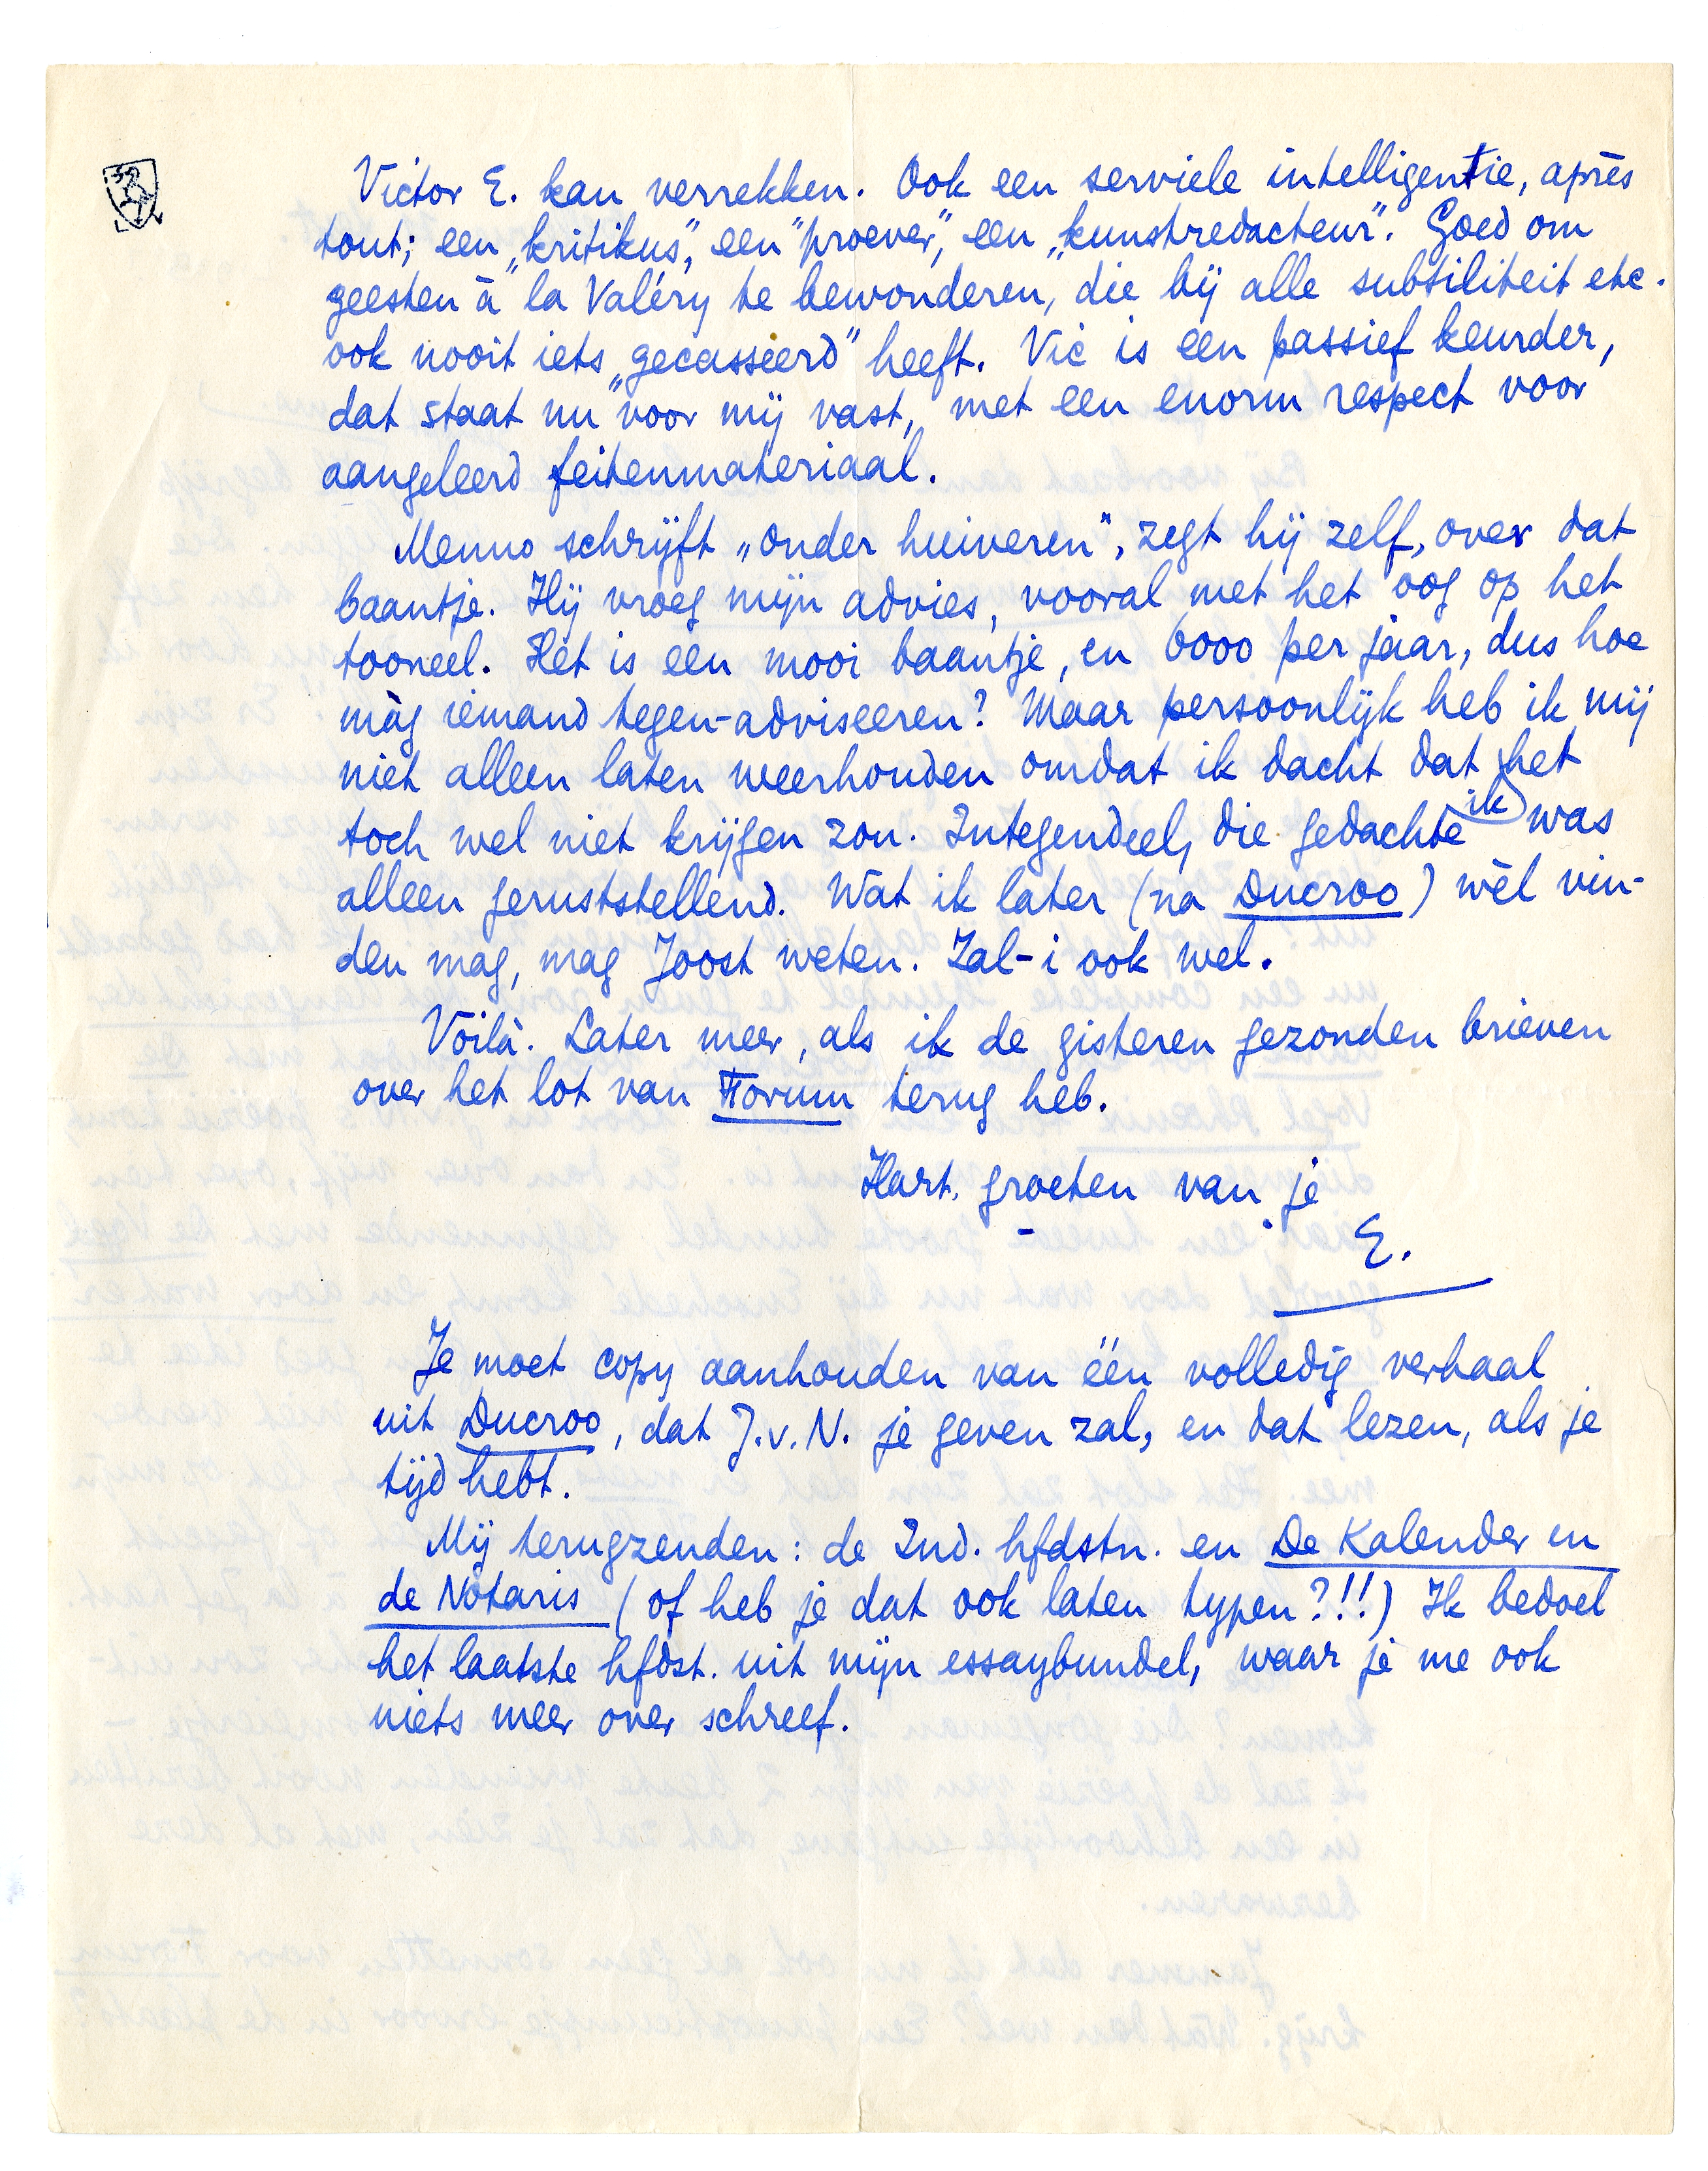 Victor E. kan verrekken. Ook een serviele intelligentie, après
tout; een „kritikus", een "proever", een „kunstredacteur". Goed om
geesten à la Valéry te bewonderen, die bij alle subtiliteit etc.
ook nooit iets „gecasseerd" heeft. Vic is een passief keurder,
dat staat nu voor mij vast, met een enorm respect voor
aangeleerd feitenmateriaal.
Menno schrijft „onder huiveren", zegt hij zelf, over dat
baantje. Hij vroeg mijn advies, vooral met het oog op het
tooneel. Het is een mooi baantje, en 6000 per jaar, dus hoe
màg iemand tegen-adviseeren? Maar persoonlijk heb ik mij
niet alleen laten weerhouden omdat ik dacht dat ik het
toch wel niet krijgen zou. Integendeel, die gedachte was
alleen geruststellend. Wat ik later (na Ducroo) wèl vin-
den mag, mag Joost weten. Zal-i ook wel.
Voilà. Later meer, als ik de gisteren gezonden brieven
over het lot van Forum terug heb.
Hart. groeten van je
E.
Je moet copy aanhouden van één volledig verhaal
uit Ducroo, dat J.v.N. je geven zal, en dat lezen, als je
tijd hebt.
Mij terugzenden: de Ind. hfdstn. en De Kalender en
de Notaris (of heb je dat ook laten typen?!!) Ik bedoel
het laatste hfdst. uit mijn essaybundel, waar je me ook
niets meer over schreef.